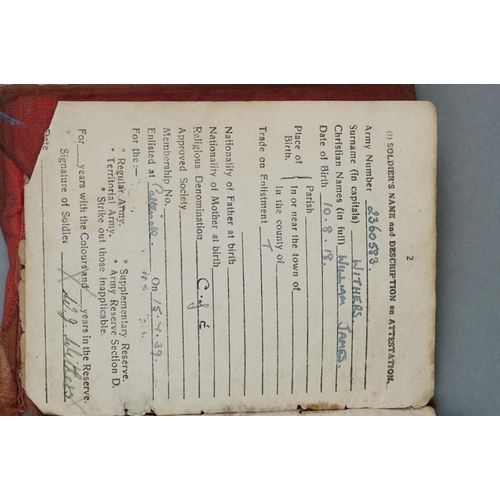 2
(I) SOLDIER'S NAME and DESCRIPTION on ATTESTATION.
Army Number 2360583.
Surname (in capitals) WITHERS
Christian Names (in full) WILLIAM JAMES.
Date of Birth 10.8.18.
Place of Birth. { Parish
In or near the town of
In the county of
Trade on Enlistment T
Nationality of Father at birth
Nationality of Mother at birth
Religious Denomination C of E
Approved Society
Membership No.
Enlisted at On 15.4.39.
For the:—
* Regular Army. * Supplementary Reserve.
* Territorial Army. * Army Reserve Section D.
* Strike out those inapplicable.
For years with the Colours and years in the Reserve.
Signature of Soldier W.J. Withers
Date